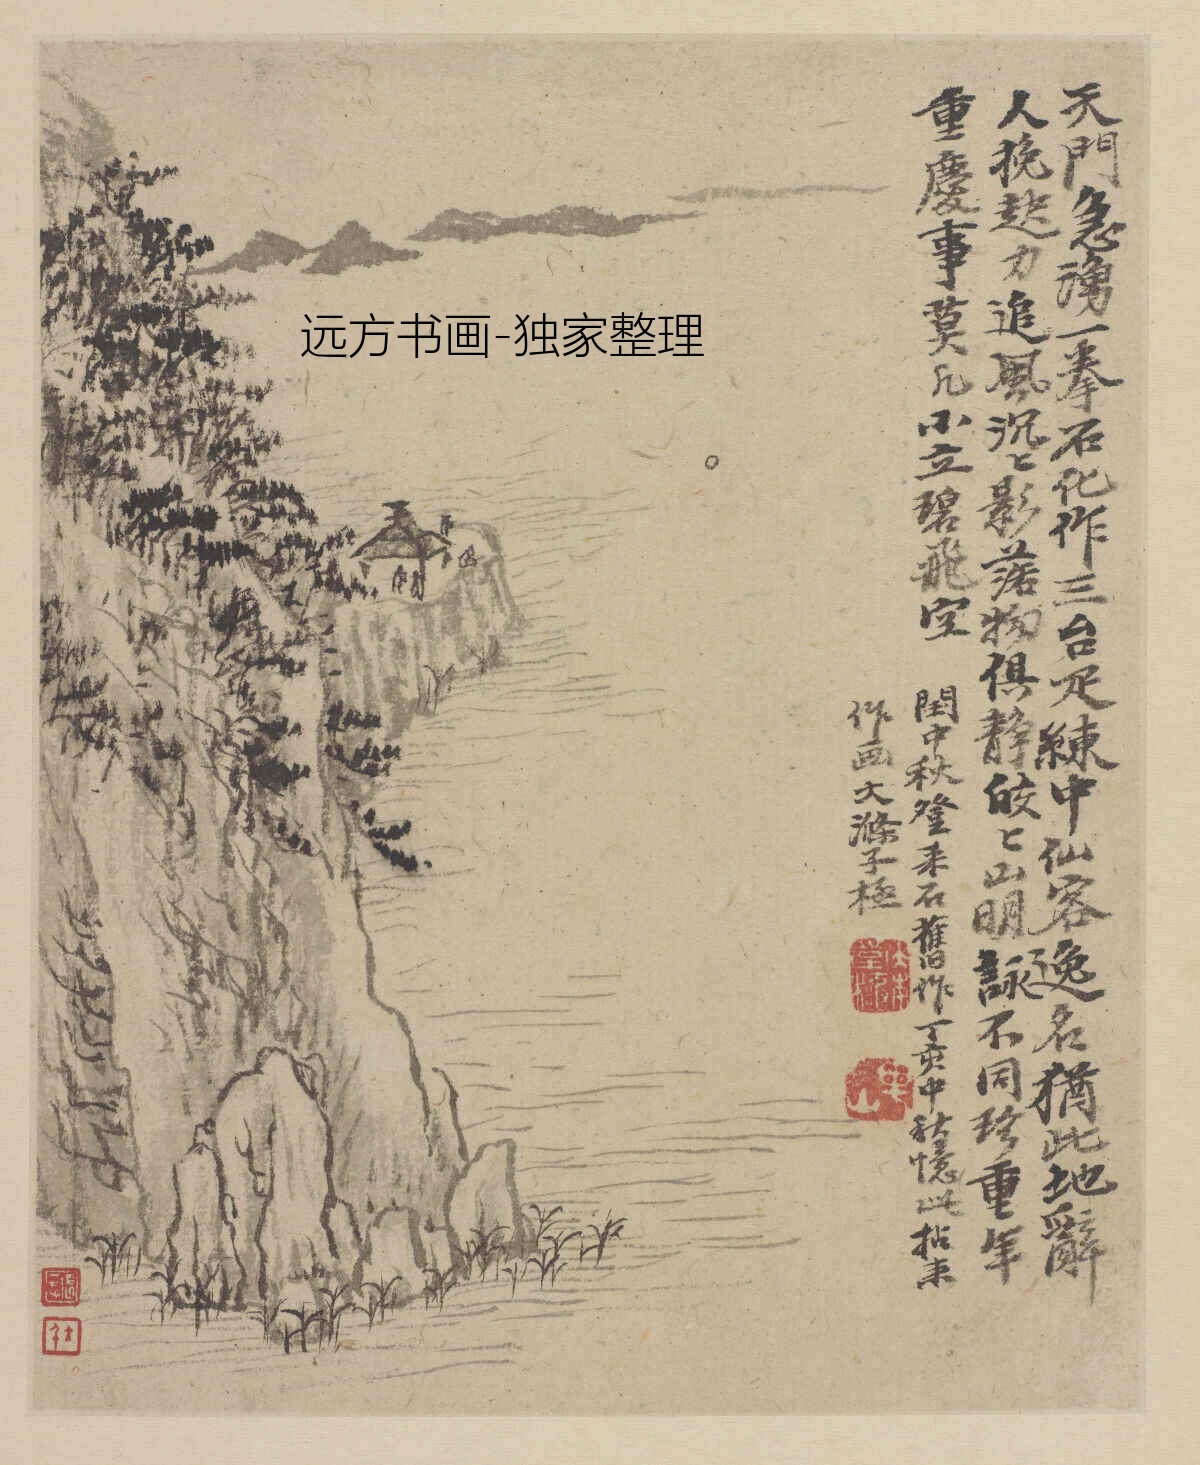 天門急湧一拳石化作三台足練中仙客逸名猶此地辭
人挽起力追風沉〻影落物俱靜皎〻山明詠不同珍重年
重慶事莫凡小立碧飛空
閏中秋登采石舊作丁亥中秋憶此拈来
作画大滌子極
远方书画-独家整理